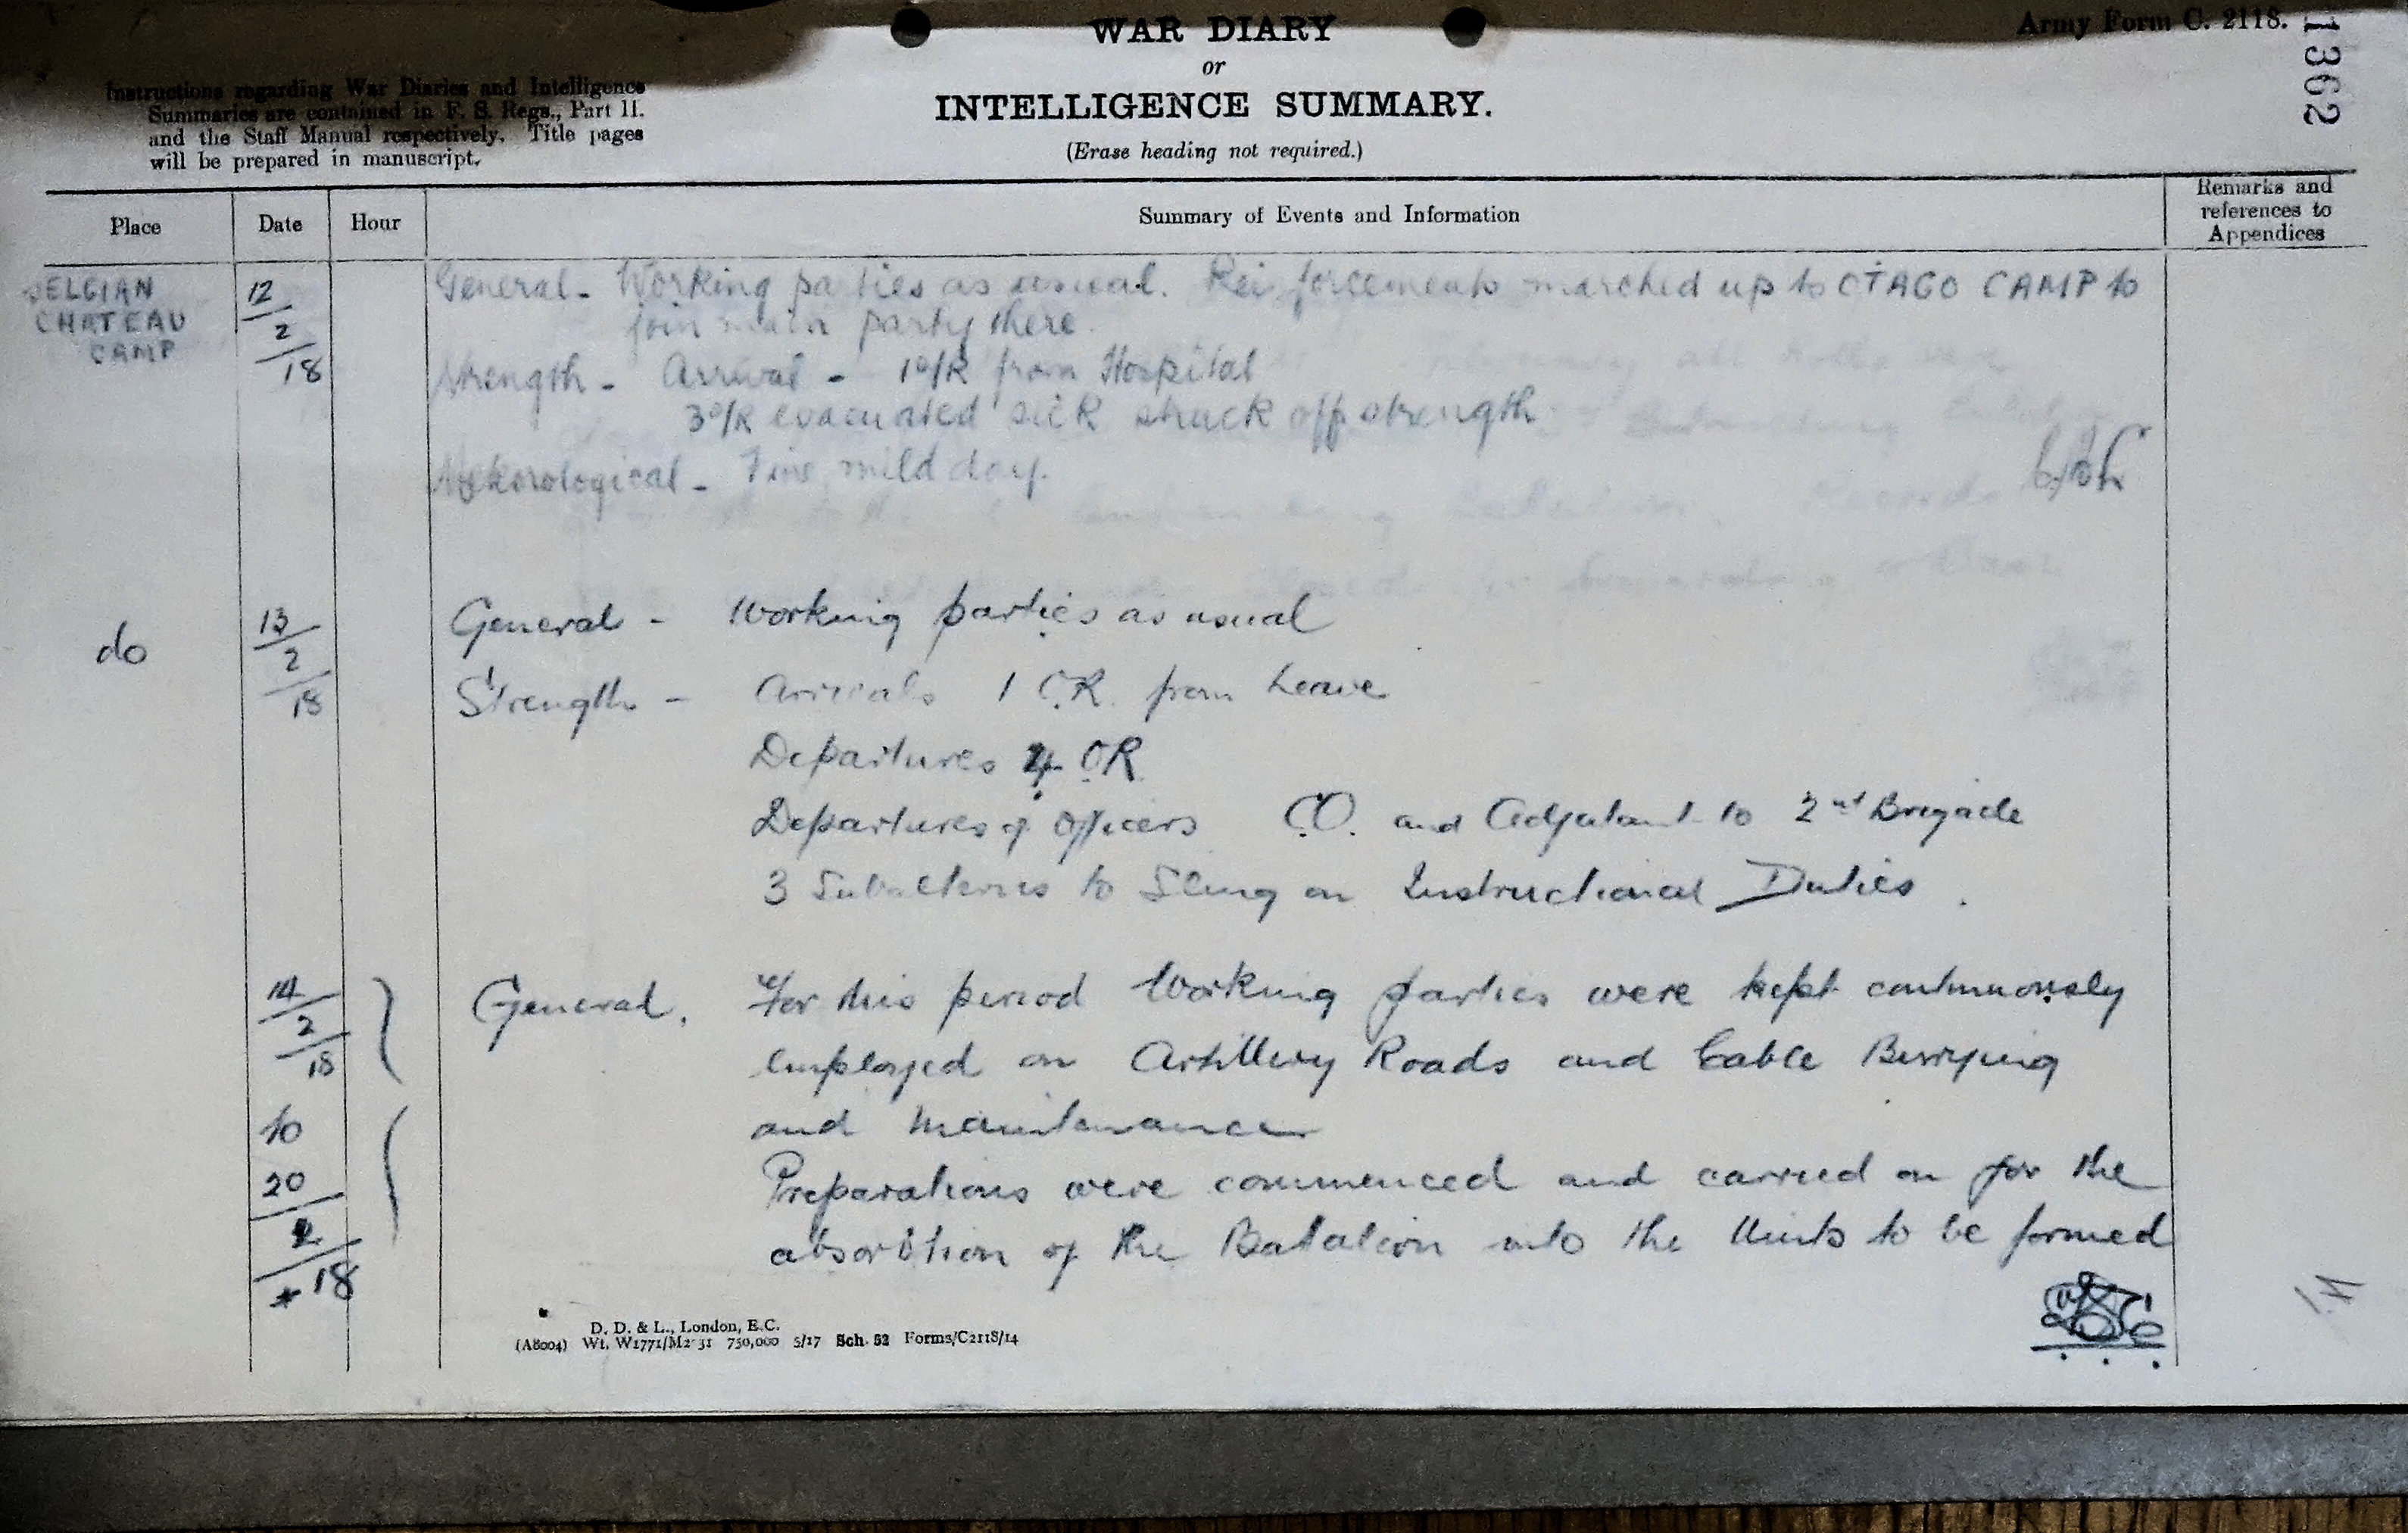 WAR DIARY
Army Form C. 2118.
1362
or
INTELLIGENCE SUMMARY.
(Erase heading not required.)
Instructions regarding War Diaries and Intelligence
Summaries are contained in F. S. Regs., Part II.
and the Staff Manual respectively. Title pages
will be prepared in manuscript.
Place Date Hour Summary of Events and Information Remarks and references to Appendices
BELGIAN CHATEAU CAMP
12/2/18
General - Working parties as usual. Reinforcements marched up to OTAGO CAMP to
join main party there.
Strength - Arrival - 1 O/R from Hospital
3 O/R evacuated sick struck off strength
Meteorological - Fine, mild day.
do 13/2/18 General - Working parties as usual
Strength - Arrivals 1 O.R. from Leave
Departures 4 OR
Departures of Officers C.O. and Adjutant to 2nd Brigade
3 Subalterns to Sling on Instructional Duties.
14/2/18 General. For this period Working parties were kept continuously
employed on Artillery Roads and Cable Burying
to and Maintenance
20/2/18 Preparations were commenced and carried on for the
absorbtion of the Batalion into the Units to be formed
D. D. & L., London, E.C.
(A8004) Wt. W1771/M2 31 750,000 5/17 Sch. 52 Forms/C2118/14